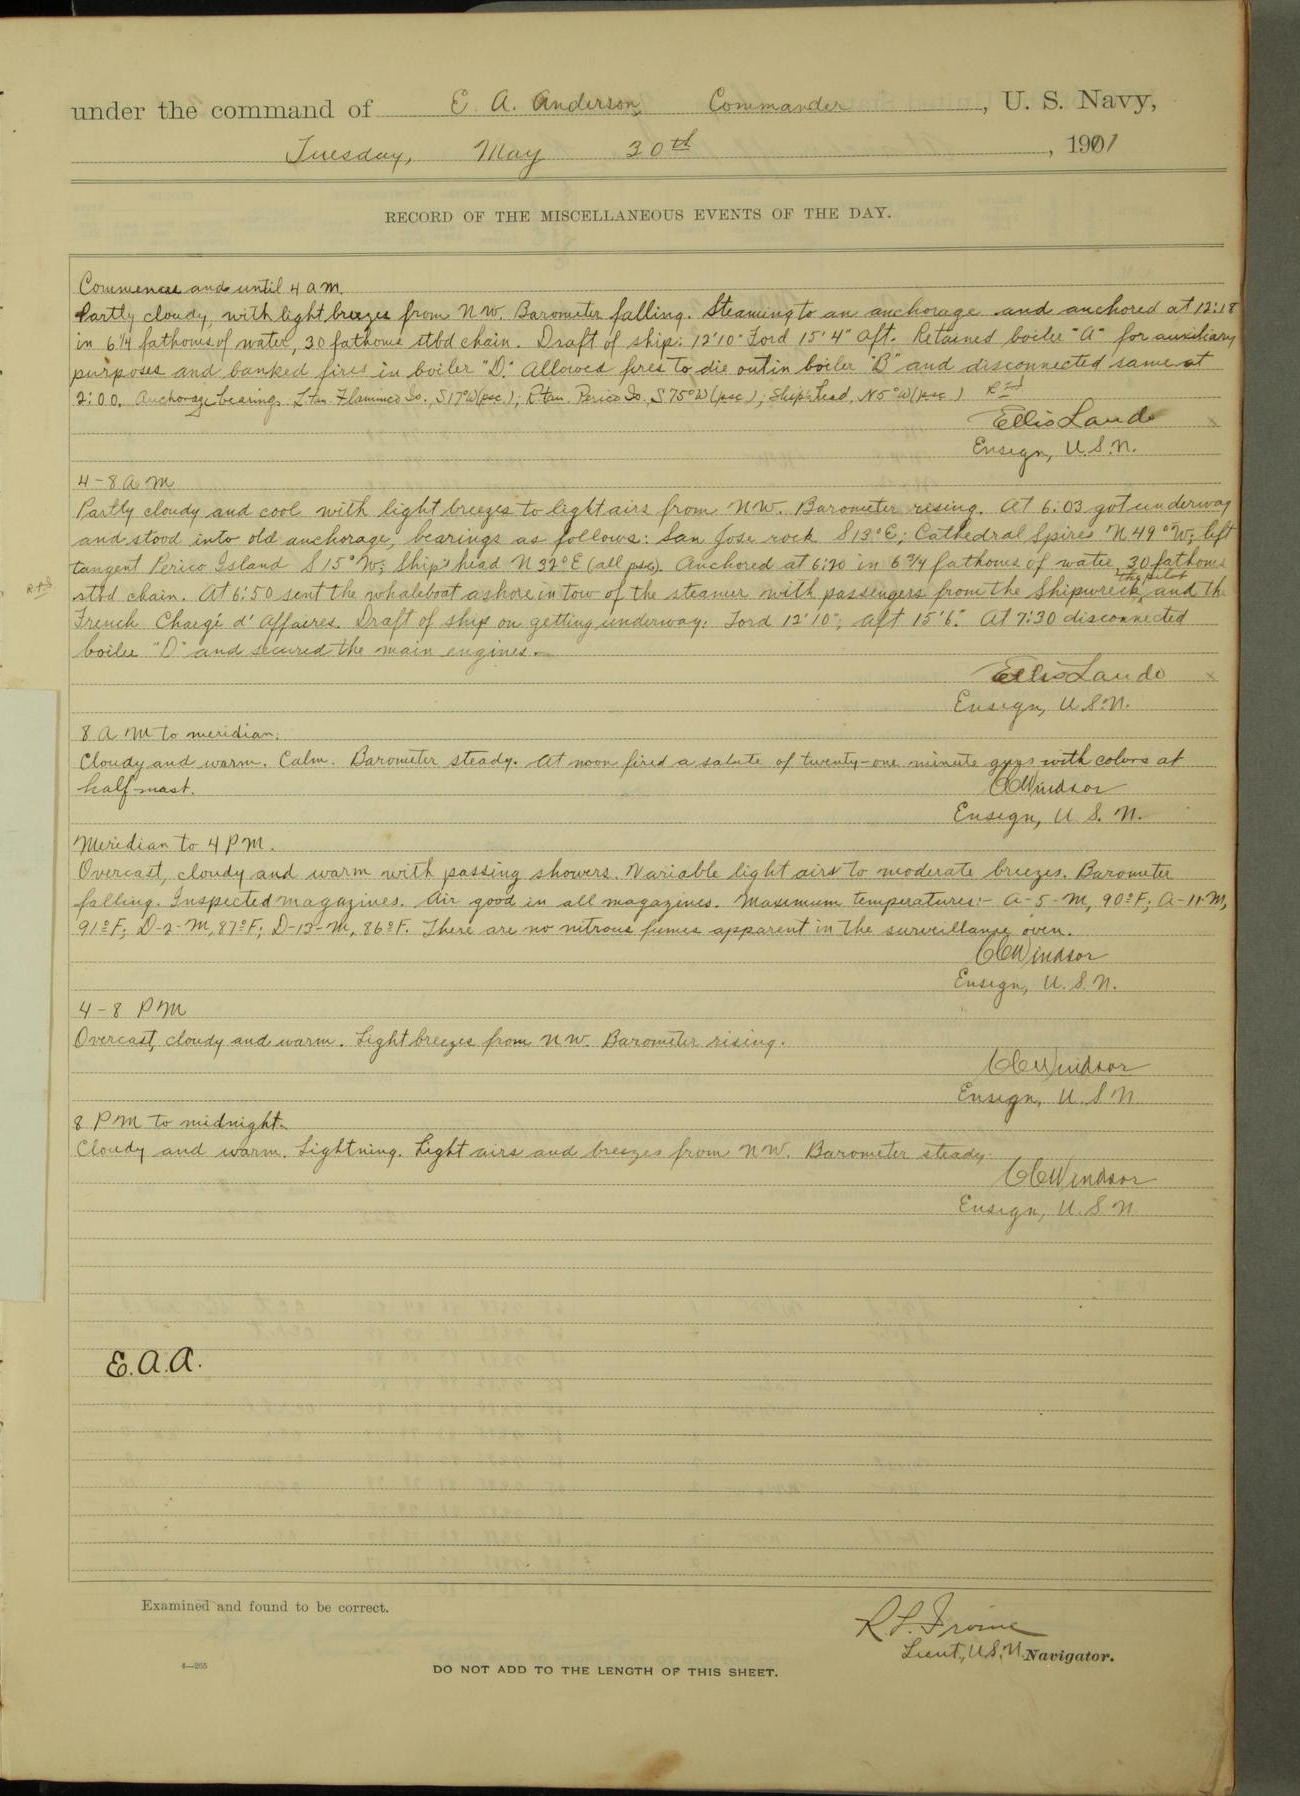 under the command of E. A. Anderson, Commander, U. S. Navy,
Tuesday, May 30th, 1901
RECORD OF THE MISCELLANEOUS EVENTS OF THE DAY.
Commences and until 4 a m.
Partly cloudy, with light breezes from NW. Barometer falling. Steaming to an anchorage and anchored at 12:18
in 6 1/4 fathoms of water, 30 fathoms stbd chain. Draft of ship: 12' 10" Ford 15' 4" aft. Retained boiler "A" for auxiliary
purposes and banked fires in boiler "D." Allowed fires to die out in boiler "B" and disconnected same at
2:00. Anchorage bearings L tan Flamenco Is., S 17° W (psc); R tan. Perico Is., S 75° W (psc); Ship's head, N 5° W (psc)
Ellis Lando
Ensign, U.S.N.
4-8 A M
Partly cloudy and cool with light breezes to light airs from NW. Barometer rising. At 6:03 got underway
and stood into old anchorage, bearings as follows: San Jose rock S 13° E; Cathedral Spires N 49° W; left
tangent Perico Island S 15° W; Ship's head N 32° E (all psc). Anchored at 6:20 in 6 3/4 fathoms of water, 30 fathoms
stbd chain. At 6:50 sent the whaleboat ashore in tow of the steamer with passengers from the Shipwreck, the pilot and the
French Chargé d' Affaires. Draft of ship on getting underway: Ford 12' 10"; aft 15' 6." At 7:30 disconnected
boiler "D" and secured the main engines.
Ellis Lando
Ensign, U.S.N.
8 A M to meridian.
Cloudy and warm. Calm. Barometer steady. At noon fired a salute of twenty-one minute guns with colors at
half-mast.
CC Windsor
Ensign, U. S. N.
Meridian to 4 P M.
Overcast, cloudy and warm with passing showers. Variable light airs to moderate breezes. Barometer
falling. Inspected magazines. Air good in all magazines. Maximum temperatures:- A-5-M, 90° F; A-11-M,
91° F; D-2-M, 87° F; D-12-M, 86° F. There are no nitrous fumes apparent in the surveillance oven.
CC Windsor
Ensign, U. S. N.
4-8 P M
Overcast, cloudy and warm. Light breezes from NW. Barometer rising.
CC Windsor
Ensign, U. S N
8 P M to midnight.
Cloudy and warm. Lightning. Light airs and breezes from NW. Barometer steady.
CC Windsor
Ensign, U. S N
E. A. A.
Examined and found to be correct.
R. L. Irvine
Lieut., U.S.N. Navigator.
DO NOT ADD TO THE LENGTH OF THIS SHEET.